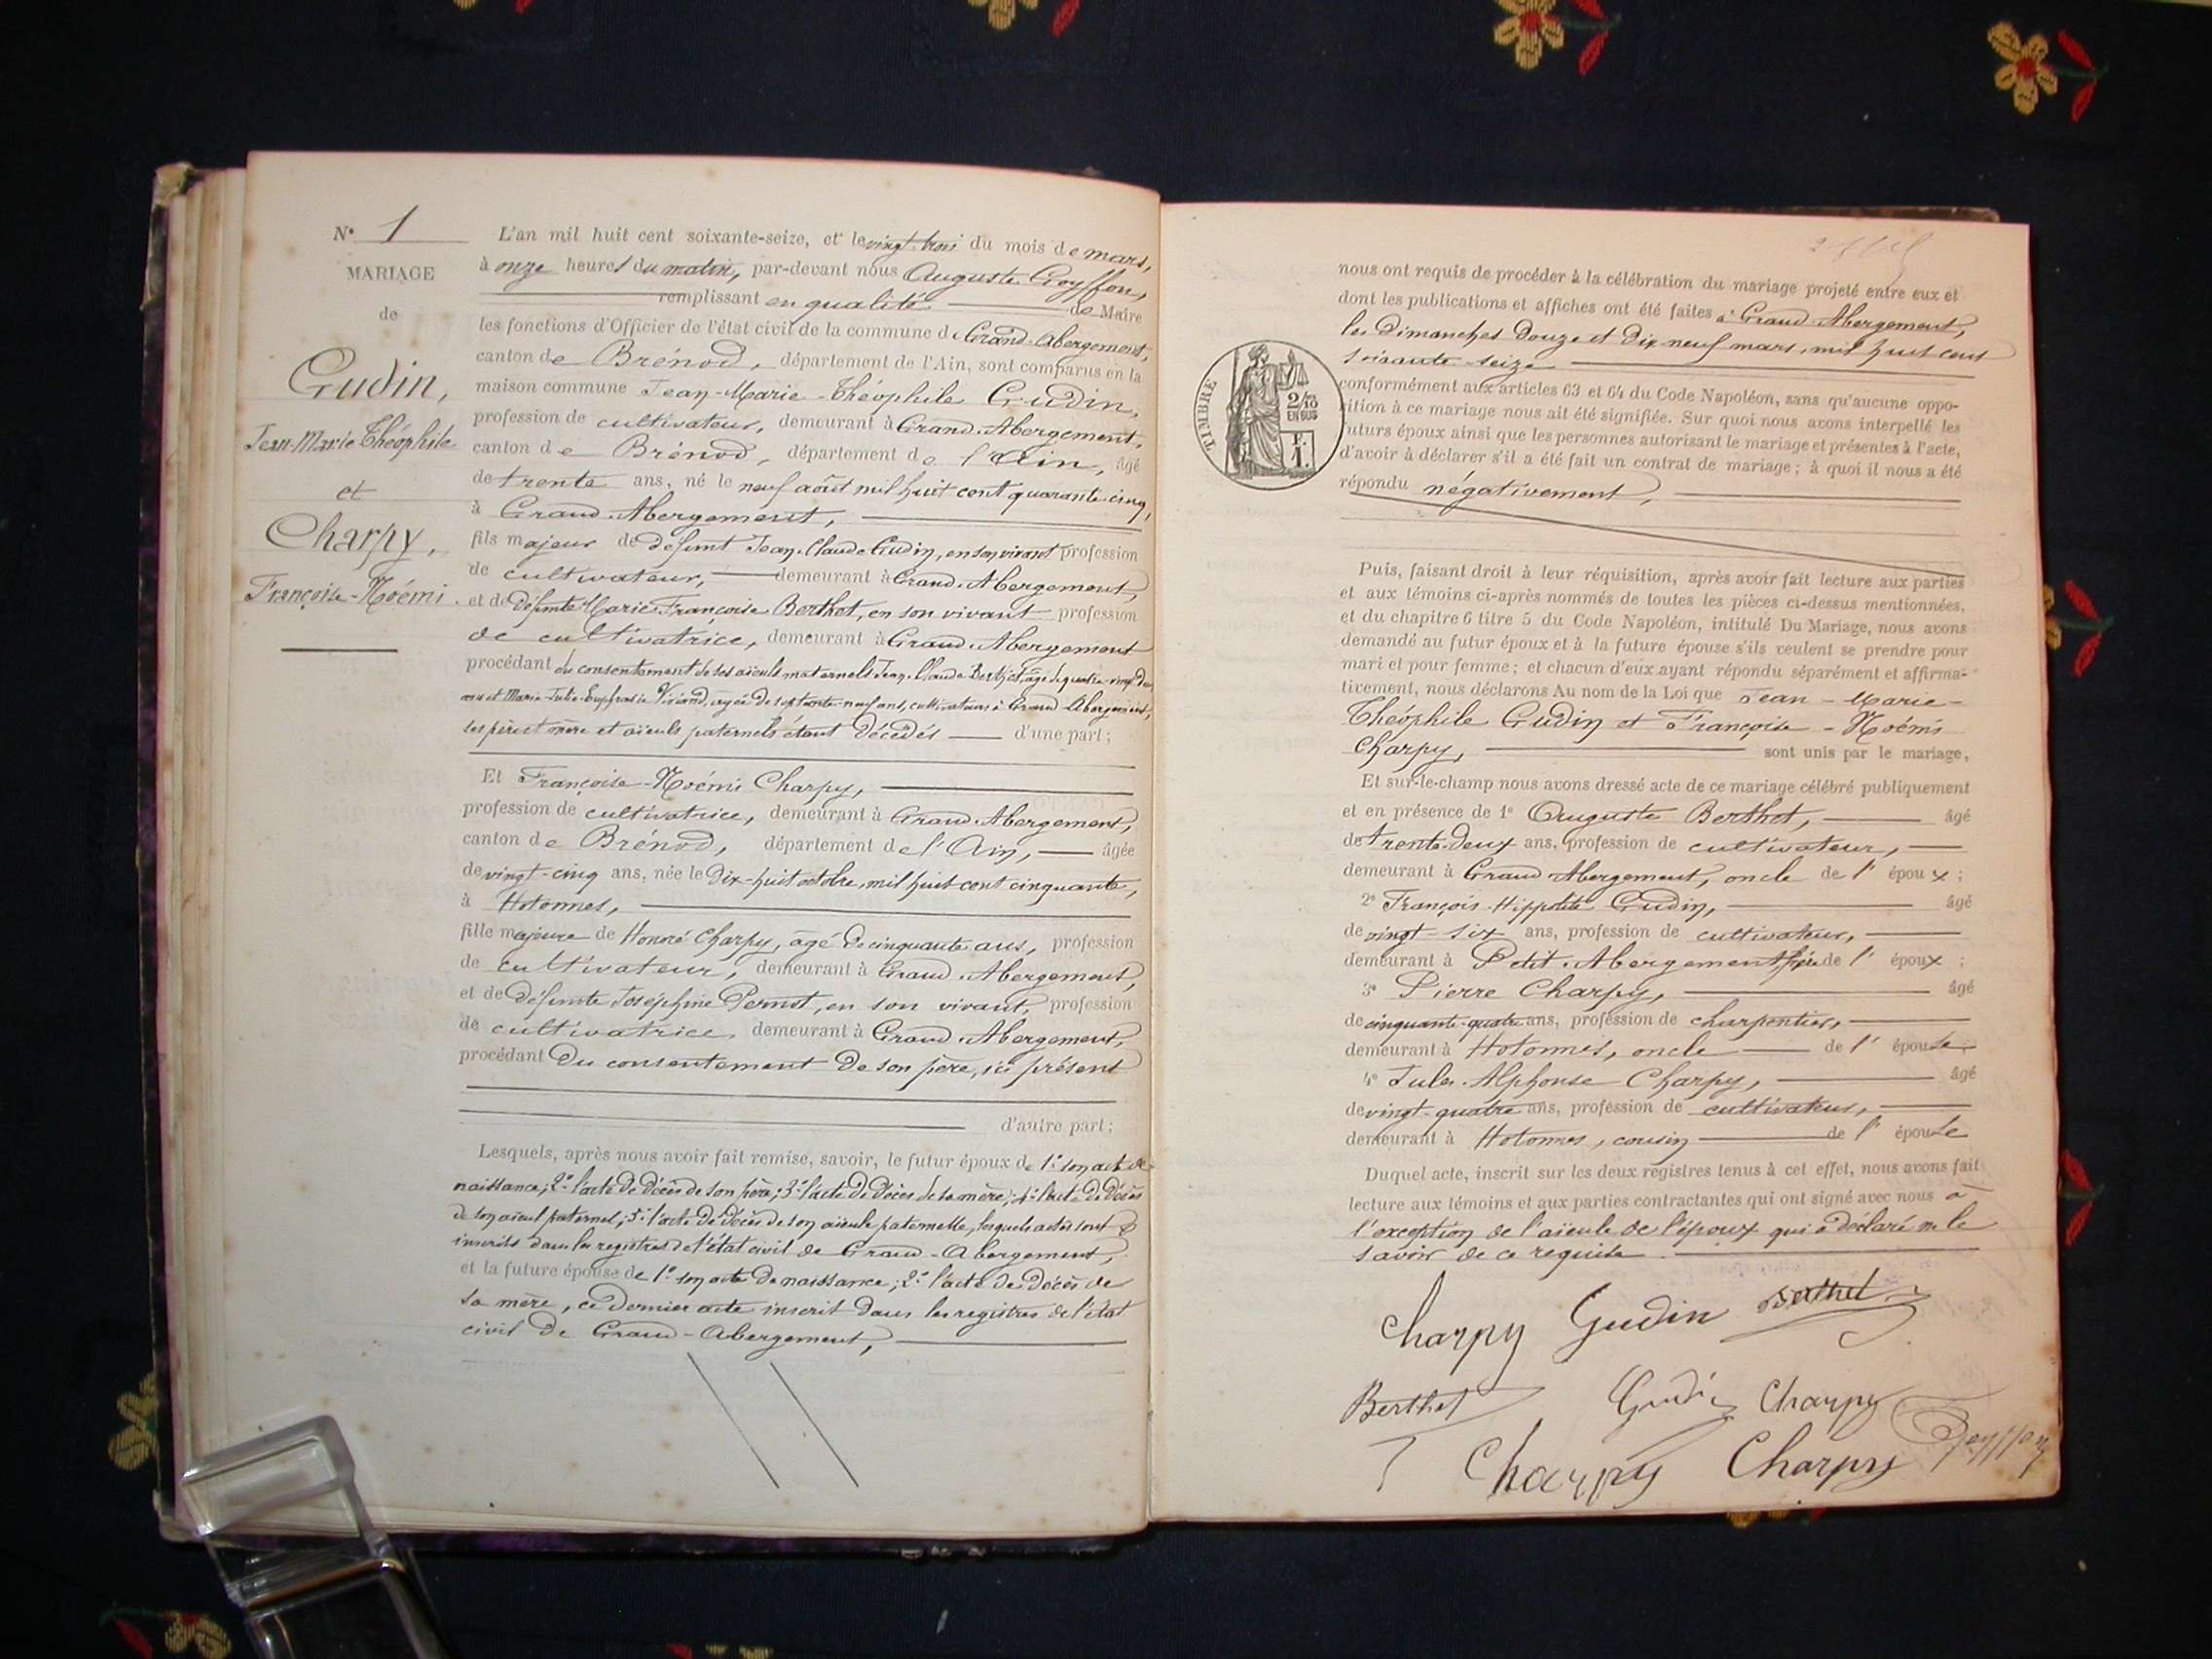 N° 1
MARIAGE
de
Gudin,
Jean-Marie Théophile
et
Charpy,
Françoise-Noémi.
L'an mil huit cent soixante-seize, et le vingt-trois du mois de mars,
à onze heures du matin, par-devant nous Auguste Goyffon,
remplissant en qualité de Maire
les fonctions d'Officier de l'état civil de la commune de Grand-Abergement,
canton de Brénod, département de l'Ain, sont comparus en la
maison commune Jean-Marie-Théophile Gudin,
profession de cultivateur, demeurant à Grand-Abergement,
canton de Brénod, département de l'Ain, âgé
de trente ans, né le neuf août mil huit cent quarante-cinq,
à Grand-Abergement,
fils majeur de défunt Jean-Claude Gudin, en son vivant profession
de cultivateur, demeurant à Grand-Abergement,
et de défunte Marie-Françoise Berthet, en son vivant profession
de cultivatrice, demeurant à Grand-Abergement
procédant du consentement de ses aïeuls maternels Jean-Claude Berthet, âgé de quatre-vingt-deux
ans et Marie-Julie-Euphrasie Viviand, âgée de septante-neuf ans, cultivateurs à Grand-Abergement,
ses père et mère et aïeuls paternels étant décédés d'une part;
Et Françoise-Noémi Charpy,
profession de cultivatrice, demeurant à Grand-Abergement,
canton de Brénod, département de l'Ain, âgée
de vingt-cinq ans, née le dix-huit octobre, mil huit cent cinquante,
à Hotonnes,
fille majeure de Honoré Charpy, âgé de cinquante ans, profession
de cultivateur, demeurant à Grand-Abergement,
et de défunte Joséphine Pernot, en son vivant, profession
de cultivatrice, demeurant à Grand-Abergement,
procédant du consentement de son père, ici présent
d'autre part;
Lesquels, après nous avoir fait remise, savoir, le futur époux de 1° son acte de
naissance; 2° l'acte de décès de son père; 3° l'acte de décès de sa mère; 4° l'acte de décès
de son aïeul paternel; 5° l'acte de décès de son aïeule paternelle, lesquels actes sont
inscrits dans les registres de l'état civil de Grand-Abergement,
et la future épouse de 1° son acte de naissance; 2° l'acte de décès de
sa mère, ce dernier acte inscrit dans les registres de l'état
civil de Grand-Abergement,
nous ont requis de procéder à la célébration du mariage projeté entre eux et
dont les publications et affiches ont été faites à Grand-Abergement,
les dimanches douze et dix-neuf mars, mil huit cent
soixante-seize
TIMBRE
2/10
EN SUS
F.
1.
conformément aux articles 63 et 64 du Code Napoléon, sans qu'aucune oppo-
sition à ce mariage nous ait été signifiée. Sur quoi nous avons interpellé les
futurs époux ainsi que les personnes autorisant le mariage et présentes à l'acte,
d'avoir à déclarer s'il a été fait un contrat de mariage; à quoi il nous a été
répondu négativement,
Puis, faisant droit à leur réquisition, après avoir fait lecture aux parties
et aux témoins ci-après nommés de toutes les pièces ci-dessus mentionnées,
et du chapitre 6 titre 5 du Code Napoléon, intitulé Du Mariage, nous avons
demandé au futur époux et à la future épouse s'ils veulent se prendre pour
mari et pour femme; et chacun d'eux ayant répondu séparément et affirma-
tivement, nous déclarons Au nom de la Loi que Jean-Marie-
Théophile Gudin et Françoise-Noémi
Charpy, sont unis par le mariage,
Et sur-le-champ nous avons dressé acte de ce mariage célébré publiquement
et en présence de 1° Auguste Berthet, âgé
de trente-deux ans, profession de cultivateur,
demeurant à Grand-Abergement, oncle de l'époux;
2° François-Hippolite Gudin, âgé
de vingt-six ans, profession de cultivateur,
demeurant à Petit-Abergement, frère de l'époux;
3° Pierre Charpy, âgé
de cinquante-quatre ans, profession de charpentier,
demeurant à Hotonnes, oncle de l'épouse
4° Jules-Alphonse Charpy, âgé
de vingt-quatre ans, profession de cultivateur,
demeurant à Hotonnes, cousin de l'épouse
Duquel acte, inscrit sur les deux registres tenus à cet effet, nous avons fait
lecture aux témoins et aux parties contractantes qui ont signé avec nous à
l'exception de l'aïeule de l'époux qui a déclaré ne le
savoir de ce requise.
Charpy Gudin Berthet
Berthet Gudin Charpy
Charpy Charpy Goyffon